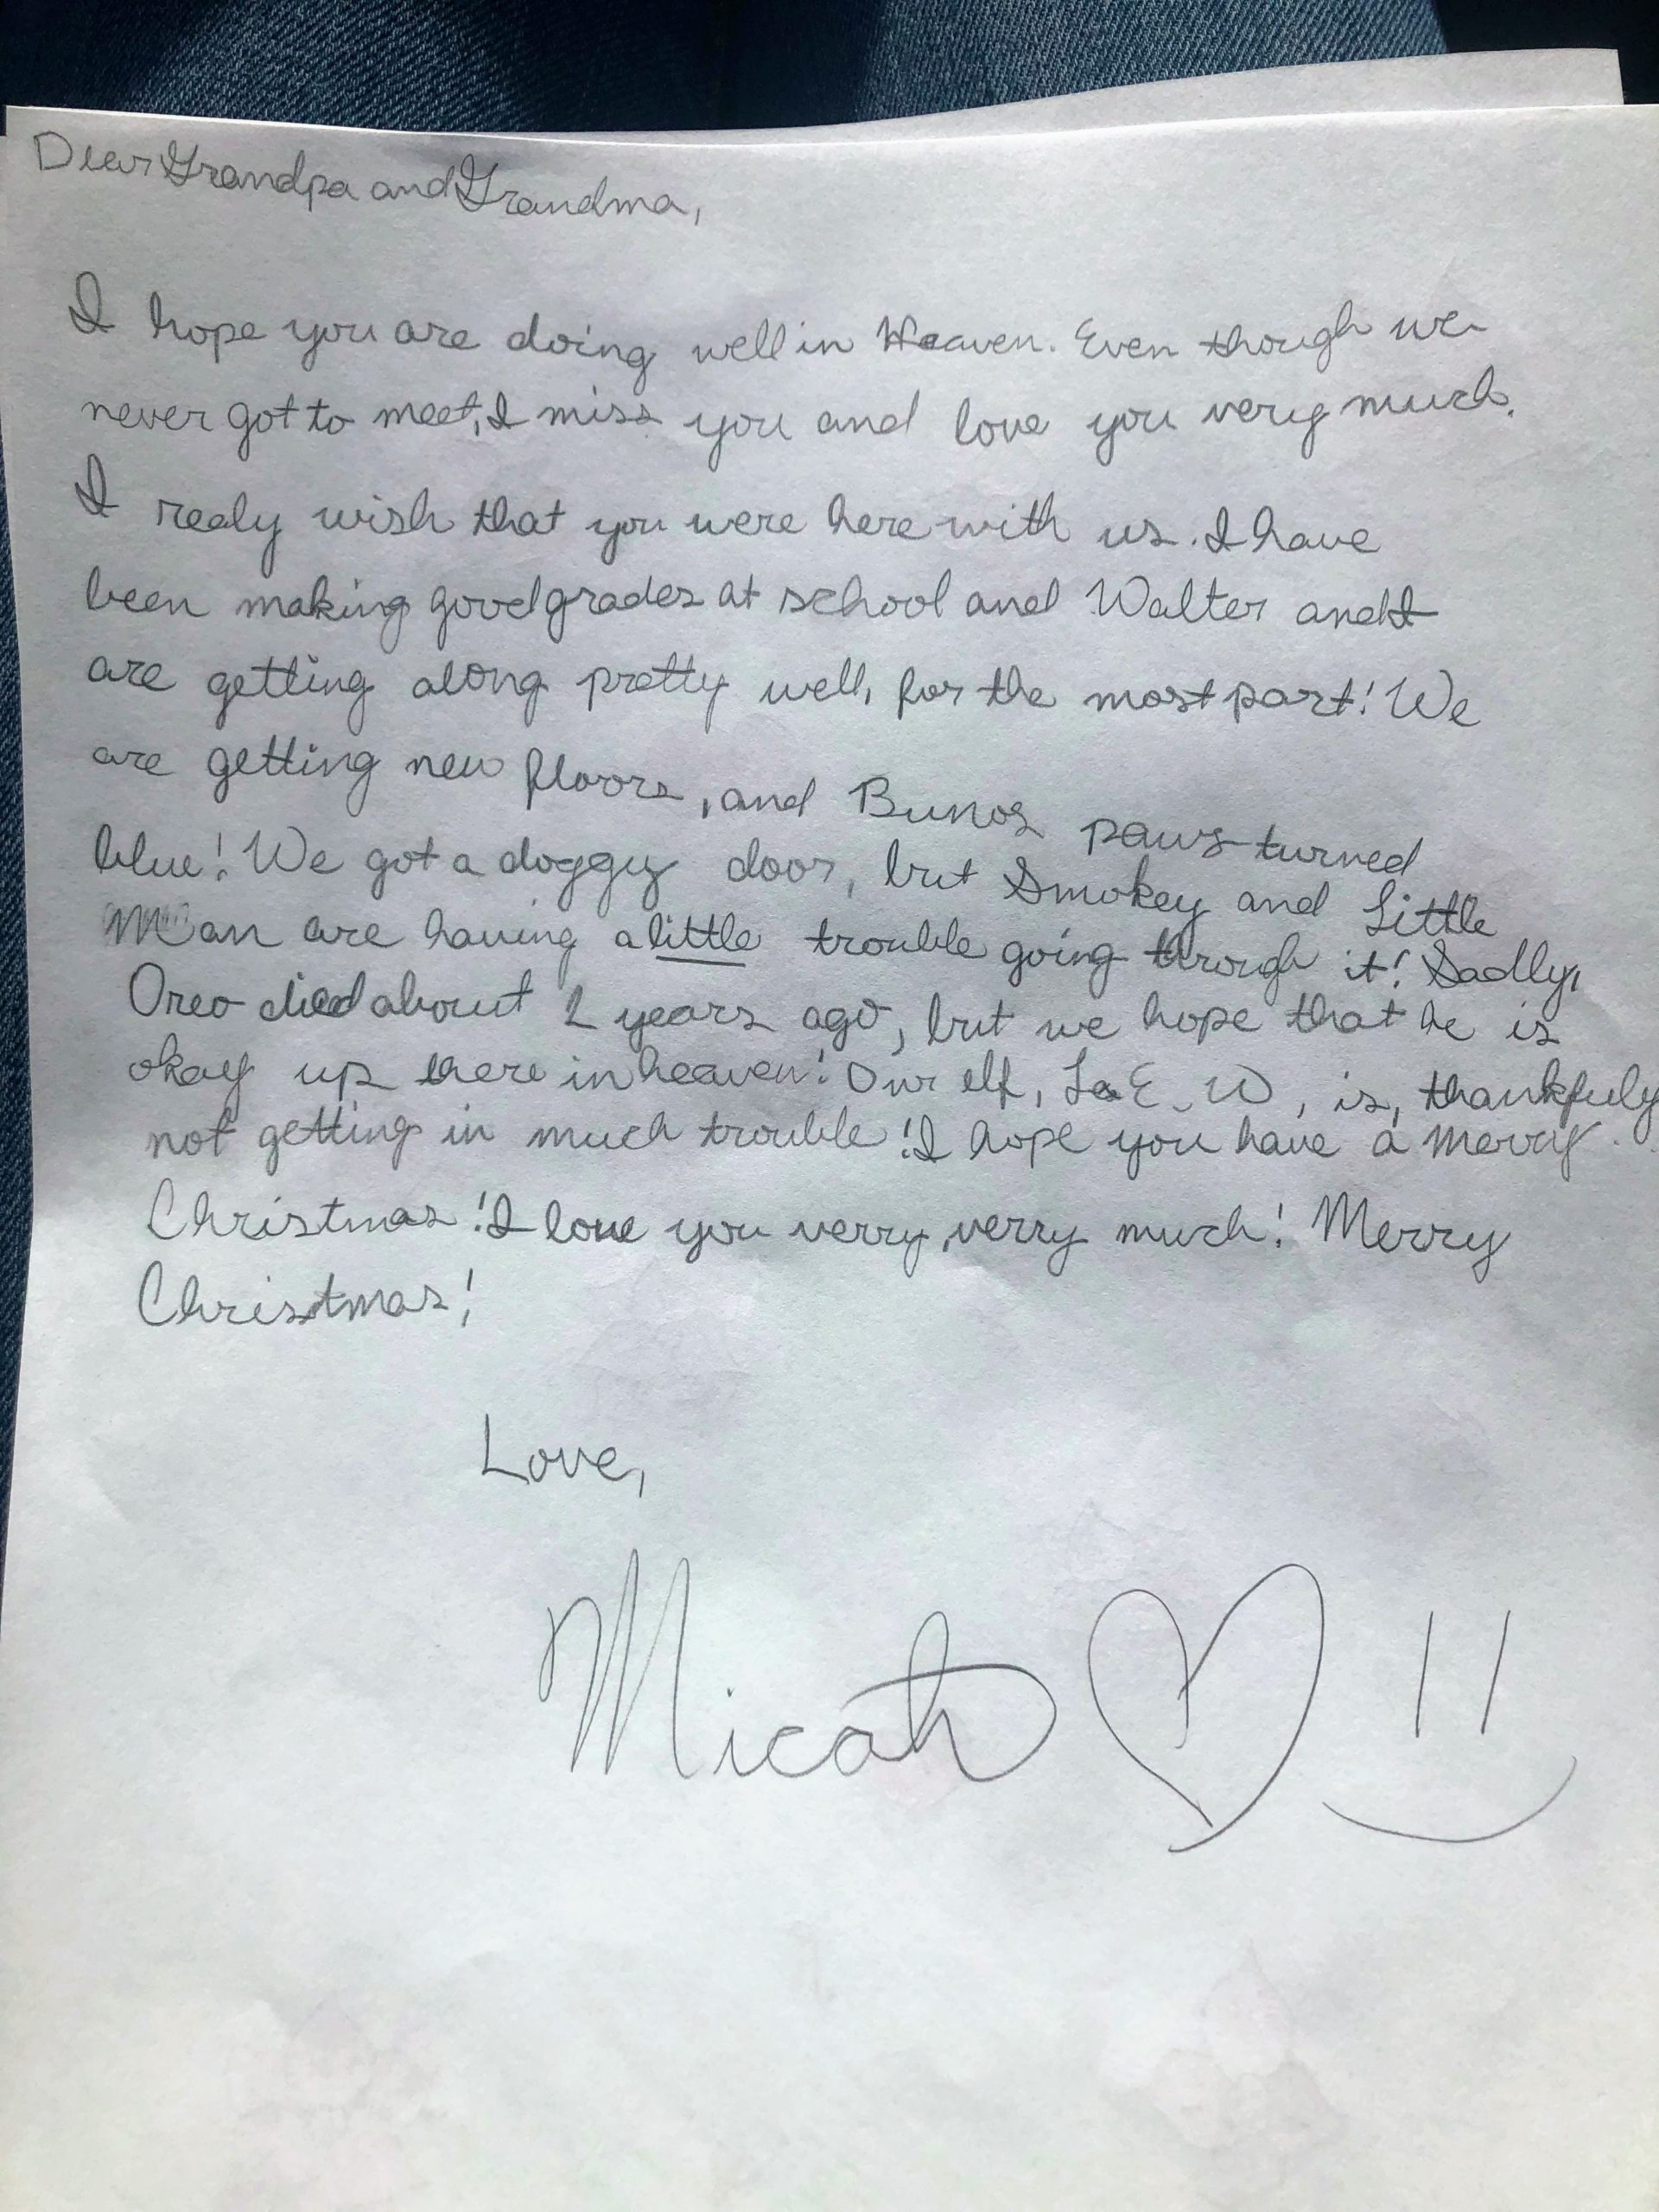 Dear Grandpa and Grandma,
I hope you are doing well in Heaven. Even though we
never got to meet, I miss you and love you very much.
I realy wish that you were here with us. I have
been making good grades at school and Walter and I
are getting along pretty well, for the most part! We
are getting new floors, and Bunos paws turned
blue! We got a doggy door, but Smokey and Little
Man are having a little trouble going through it! Sadly,
Oreo died about 2 years ago, but we hope that he is
okay up there in heaven! Our elf, La E. W, is, thankfuly
not getting in much trouble! I hope you have a merry
Christmas! I love you verry, verry much! Merry
Christmas!
Love,
Micah